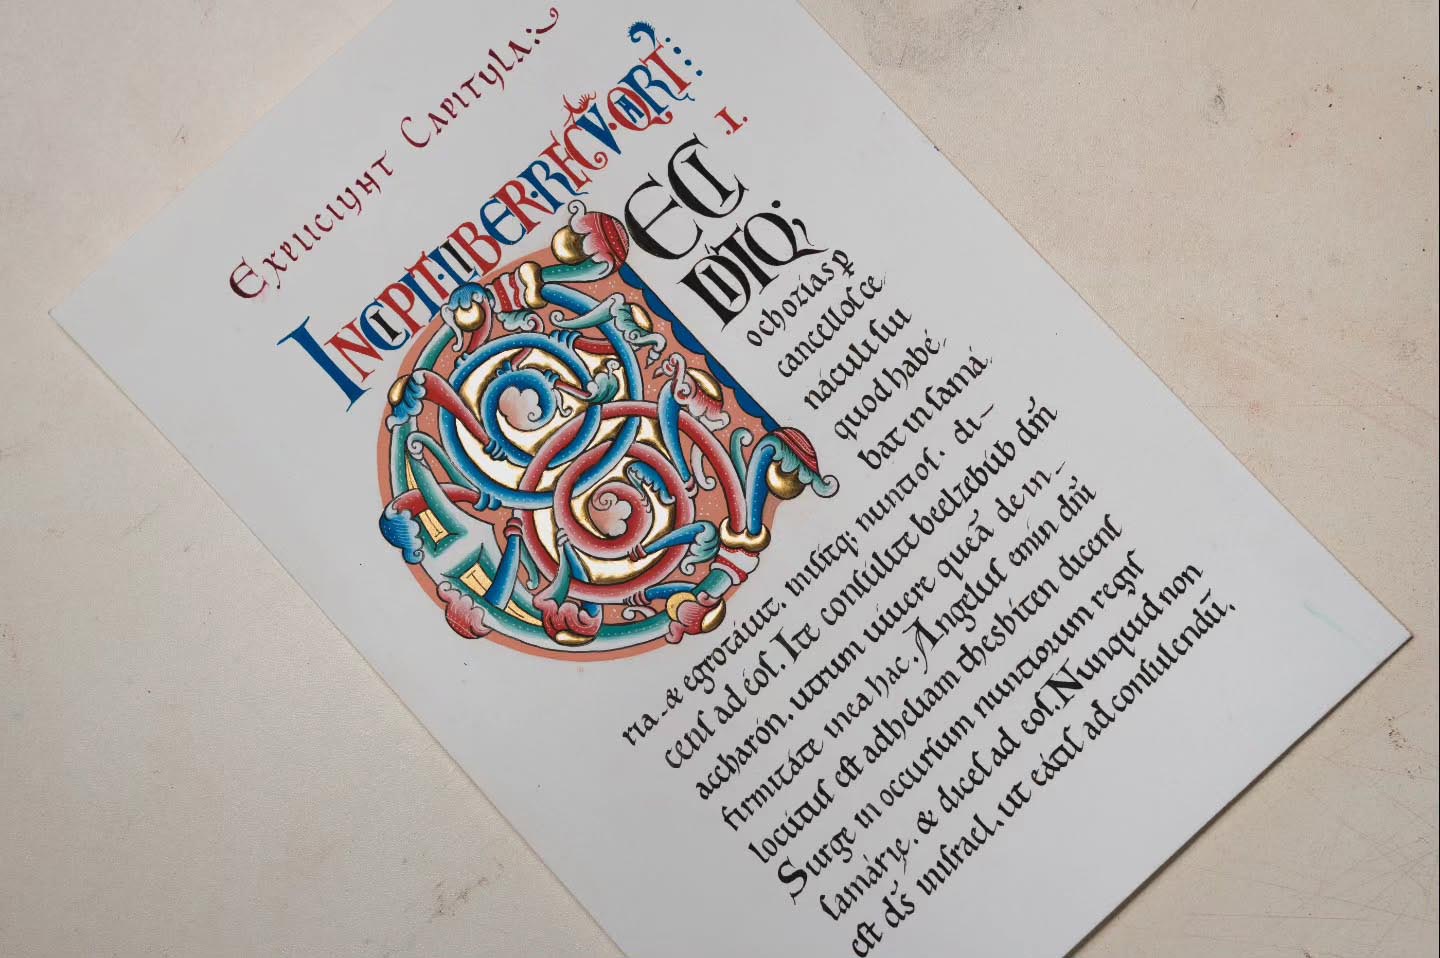 Expliciunt Capitula:
INCIPIT·LIBER·REGV̄·QVART:
I.
CECI
DITQ;
ochozias ꝑ
cancelloſ ce
náculi ſui
quod habé
bat in ſamá
ria & egrotáuit. miſitq; nuntioſ. di-
cenſ ad éoſ. Ite conſúlite beelzebúb dm̄
accharón. utrum uiuere queā de in-
firmitáte mea hac. Angeluſ emin dm̄
locútuſ eſt ad heliam thesbiten dicenſ
Surge in occurſum nuntiorum regiſ
ſamárię. & diceſ ad eoſ. Nunquid non
eſt dſ̄ iniſrael. ut eátiſ ad conſulendū.